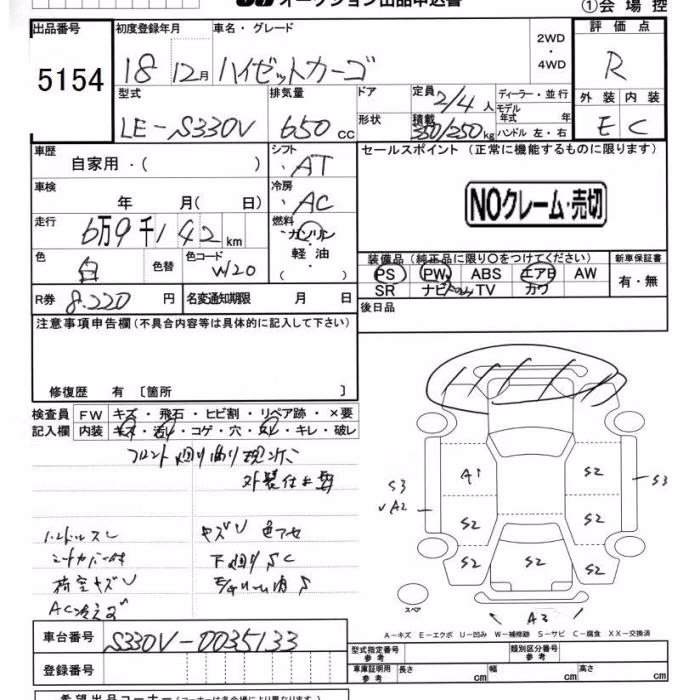 オークション出品申込書 ①会場控
出品番号 初度登録年月 車名・グレード 2WD ・ 4WD 評価点
5154 18 12月 ハイゼットカーゴ R
型式 排気量 ドア 定員 2/4人 ディーラー・並行 外装 内装
LE-S330V 650 cc 形状 積載 350/250kg モデル年式 年 ハンドル 左・右 E C
車歴 シフト セールスポイント (正常に機能するものに限ります)
自家用・( ) ・AT
車検 冷房 NOクレーム・売切
年 月( 日) ・AC
走行 燃料
6万9千142km ・ガソリン
軽油 ・( )
色 色替 色コード 装備品(純正品に限り○をつけてください) 新車保証書
白 W20 PS PW ABS エアB AW 有・無
SR ナビ TV カワ
R券 8.220 円 名変通知期限 月 日 後日品
注意事項申告欄(不具合内容等は具体的に記入して下さい)
修復歴 有 〔箇所 〕
検査員 FW キズ・飛石・ヒビ割・リペア跡・×要
記入欄 内装 キズ・汚レ・コゲ・穴・スレ・キレ・破レ
フロント廻り曲り現状
ハンドルスレ キズU 色アセ
シートカバー付 下廻りSC
荷室キズU
AC冷えず
A1 S2
S3 S3
√A2
S2 S2
S2 S2 S2
スペア A3
A-キズ E-エクボ U-凹み W-補修跡 S-サビ C-腐食 XX-交換済
車台番号 S330V-0035133 型式指定番号 参考 類別区分番号 参考
登録番号 車庫証明用 参考 長さ cm 幅 cm 高さ cm
希望出品コーナー(コーナーは各会場により異なります)